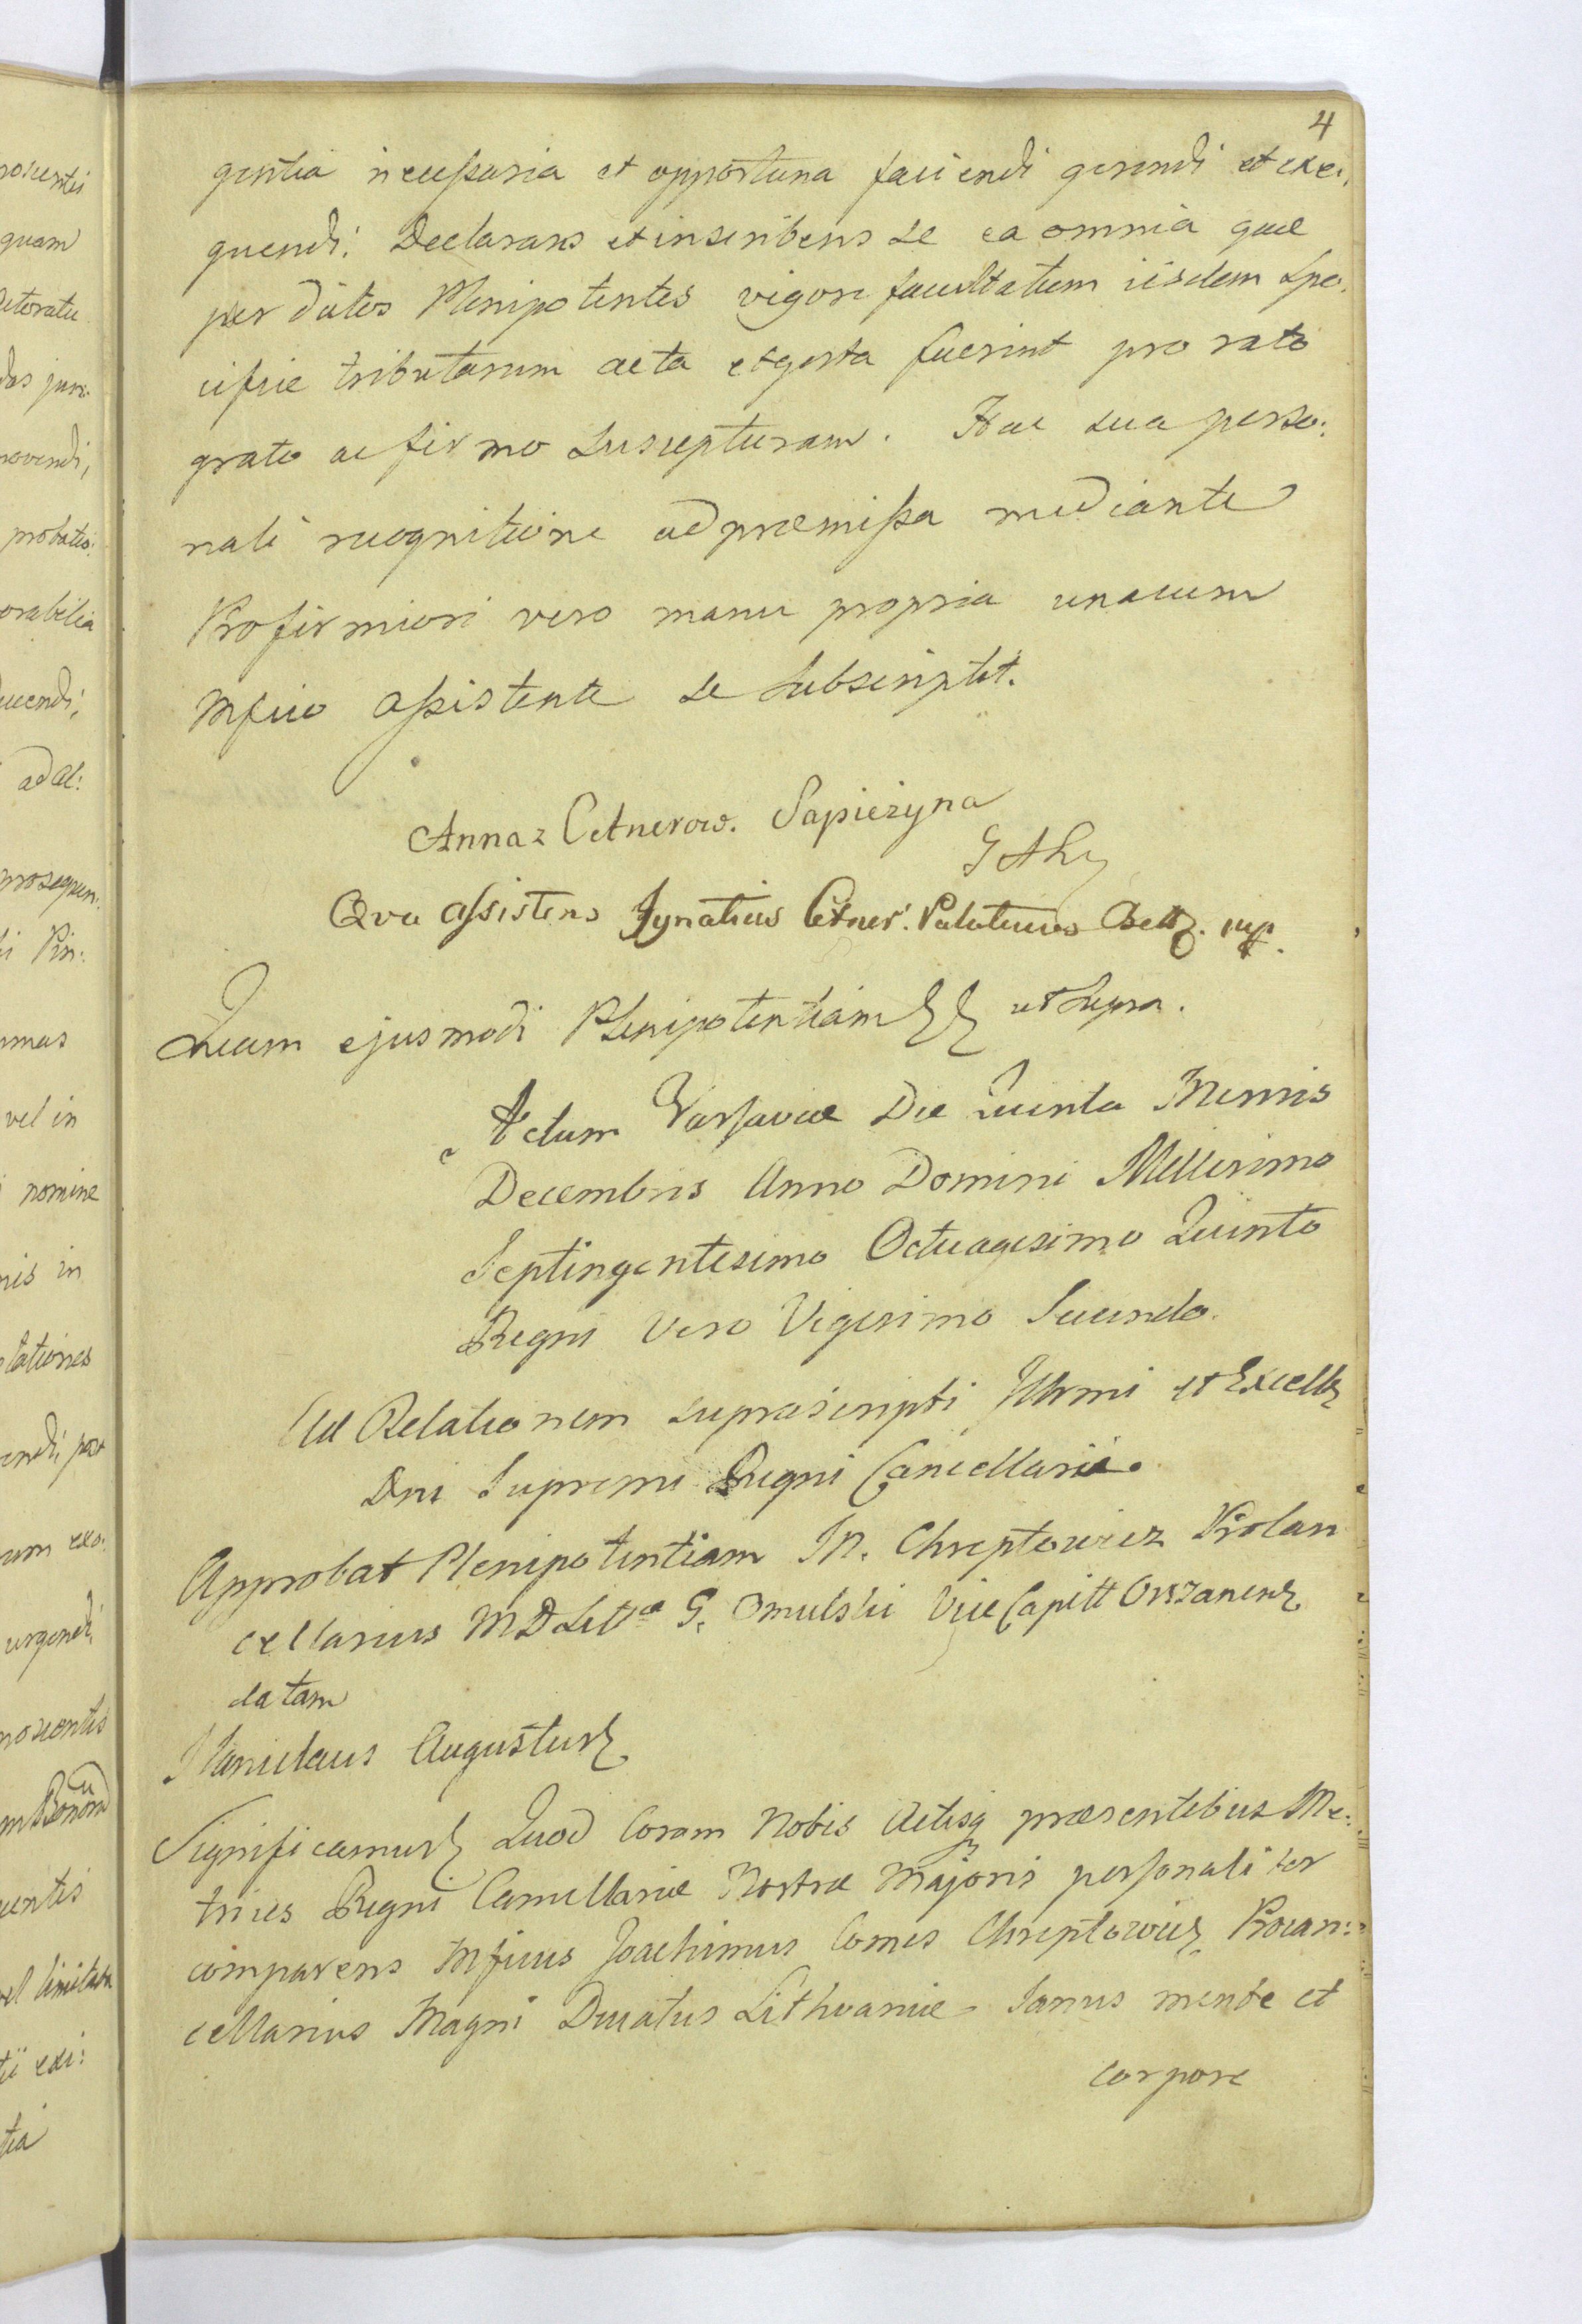 4
gentia necessaria et opportuna faciendi gerendi et exe:
quendi. Declarans et inscribens se ea omnia quæ
per dictos Plenipotentes vigore facultatum iisdem spe:
cifice tributarum acta et gesta fuerint pro rato
grato ac firmo suscepturam. Hac sua perso:
nali recognitione ad præmissa mediante
Pro firmiori vero manu propria unacum
Mfico assistente se subscripsit.
Anna z Cetnerow. Sapieżyna
Qva assistens Ignatius Cetner. Palatinus Belz. mp.
Quam ejusmodi Plenipotentiam ut supra.
Actum Varsaviæ Die Quinta Mensis
Decembris Anno Domini Millesimo
Septingentesimo Octuagesimo Quinto
Regni Vero Vigesimo Secundo.
Ad Relationem suprascripti Illrmi et Excell
Dni Supremi Regni Cancellarii.
Approbat Plenipotentiam M. Chreptowicz Proban
cellarius MDLitt G. Omulski Vice Capitt Orszanen
datam
Stanislaus Augustus
Significamus Quod Coram Nobis Actisq præsentibus Me:
trices Regni Cancellariæ Nostræ Majoris personaliter
comparens Mficus Joachimus Comes Chreptowicz Procan:
cellarius Magni Ducatus Lithvaniæ Sanus mente et
corpore
nomine
vel in
probatio:
quam